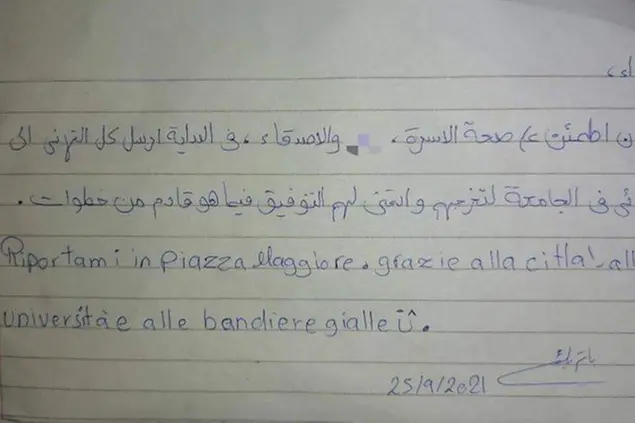 اء،
ن اطمئن ع/ صحة الاسرة، والاصدقاء، في البداية ارسل كل التهاني الى
ئي في الجامعة لتخرجهم واتمنى لهم التوفيق فيما هو قادم من خطوات.
Riportami in piazza Maggiore. grazie alla citta'- all
universitàe alle bandiere gialle Ü.
25/9/2021